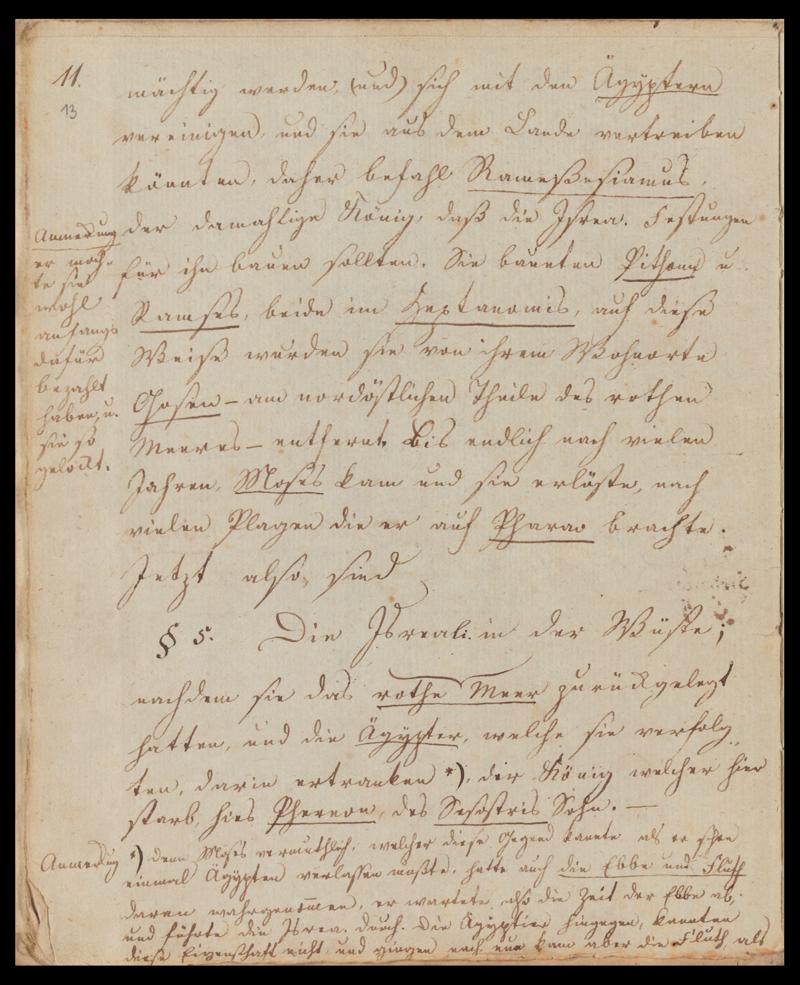 11.
13
mächtig werden, (und) sich mit den Ägyptern
vereinigen, und sie aus dem Lande vertreiben
könnten, daher befahl Rameßesiamus,
der damahlige König, daß die Isrea. Festungen
für ihn bauen sollten. Sie bauten Pithom u.
Ramses, beide im Heptanomis, auf diese
Weise wurden sie von ihrem Wohnorte
Gosen – am nordöstlichen Theile des rothen
Meeres – entfernt. Bis endlich nach vielen
Jahren, Moses kam und sie erlöste, nach
vielen Plagen die er auf Pharao brachte.
Jetzt also, sind
Anmerkung
er moch-
te sie
wohl
anfangs
dafür
bezahlt
haben, u.
sie so
gelockt.
§ 5. Die Isreali. in der Wüste;
nachdem sie das rothe Meer zurückgelegt
hatten, und die Ägypter, welche sie verfolg
ten, darin ertranken *), der König welcher hier
starb, hies Pheron, des Sesostris Sohn. —
Anmerkung *) denn Moses vermuthlich, welcher diese Gegend kannte als er schon
einmal Ägypten verlassen mußte, hatte auch die Ebbe und Fluth
daran wahrgenommen, er wartete also die Zeit der Ebbe ab,
und führte die Isrea. durch. Die Ägyptier hingegen, kannten
diese Eigenschaft nicht und gingen nach nun kam aber die Fluth als